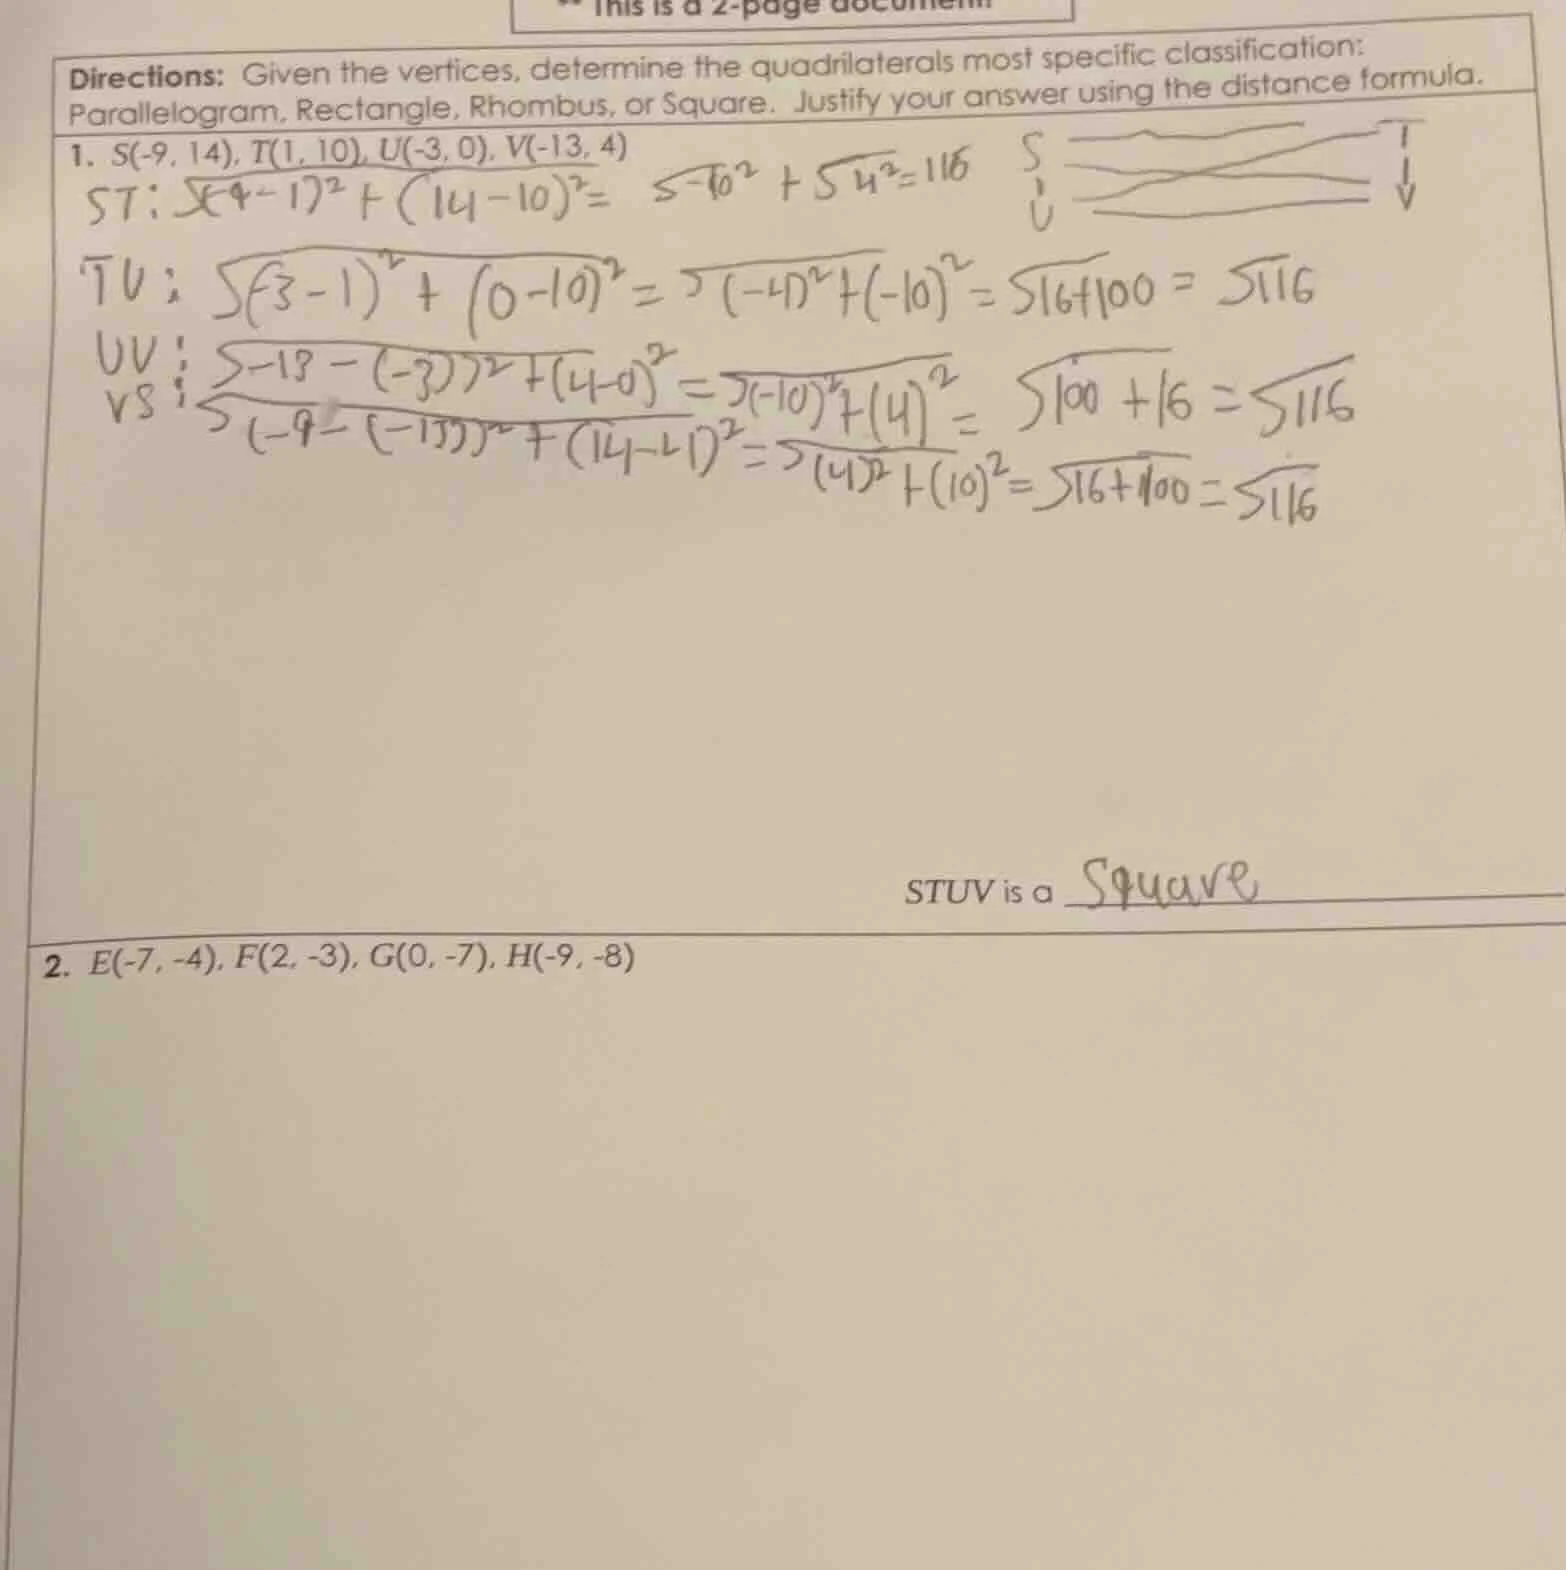 ** This is a 2-page document!
Directions: Given the vertices, determine the quadrilaterals most specific classification:
Parallelogram, Rectangle, Rhombus, or Square. Justify your answer using the distance formula.
1. S(-9, 14), T(1, 10), U(-3, 0), V(-13, 4)
ST: √(-9-1)² + (14-10)² = √-10² + √4² = 116
S T
U
TU: √(-3-1)² + (0-10)² = √(-4)² + (-10)² = √16+100 = √116
UV: √-13-(-3))² + (4-0)² = √(-10)² + (4)² = √100+16 = √116
VS: √(-9-(-13))² + (14-4)² = √(4)² + (10)² = √16+100 = √116
STUV is a Square
2. E(-7, -4), F(2, -3), G(0, -7), H(-9, -8)